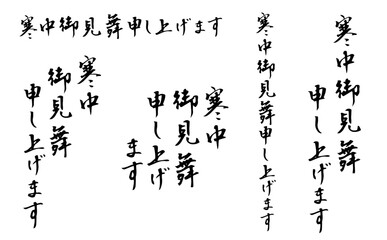 寒中御見舞申し上げます
寒中御見舞
申し上げます
寒中御見舞申し上げます
寒中
御見舞
申し上げ
ます
寒中
御見舞
申し上げます